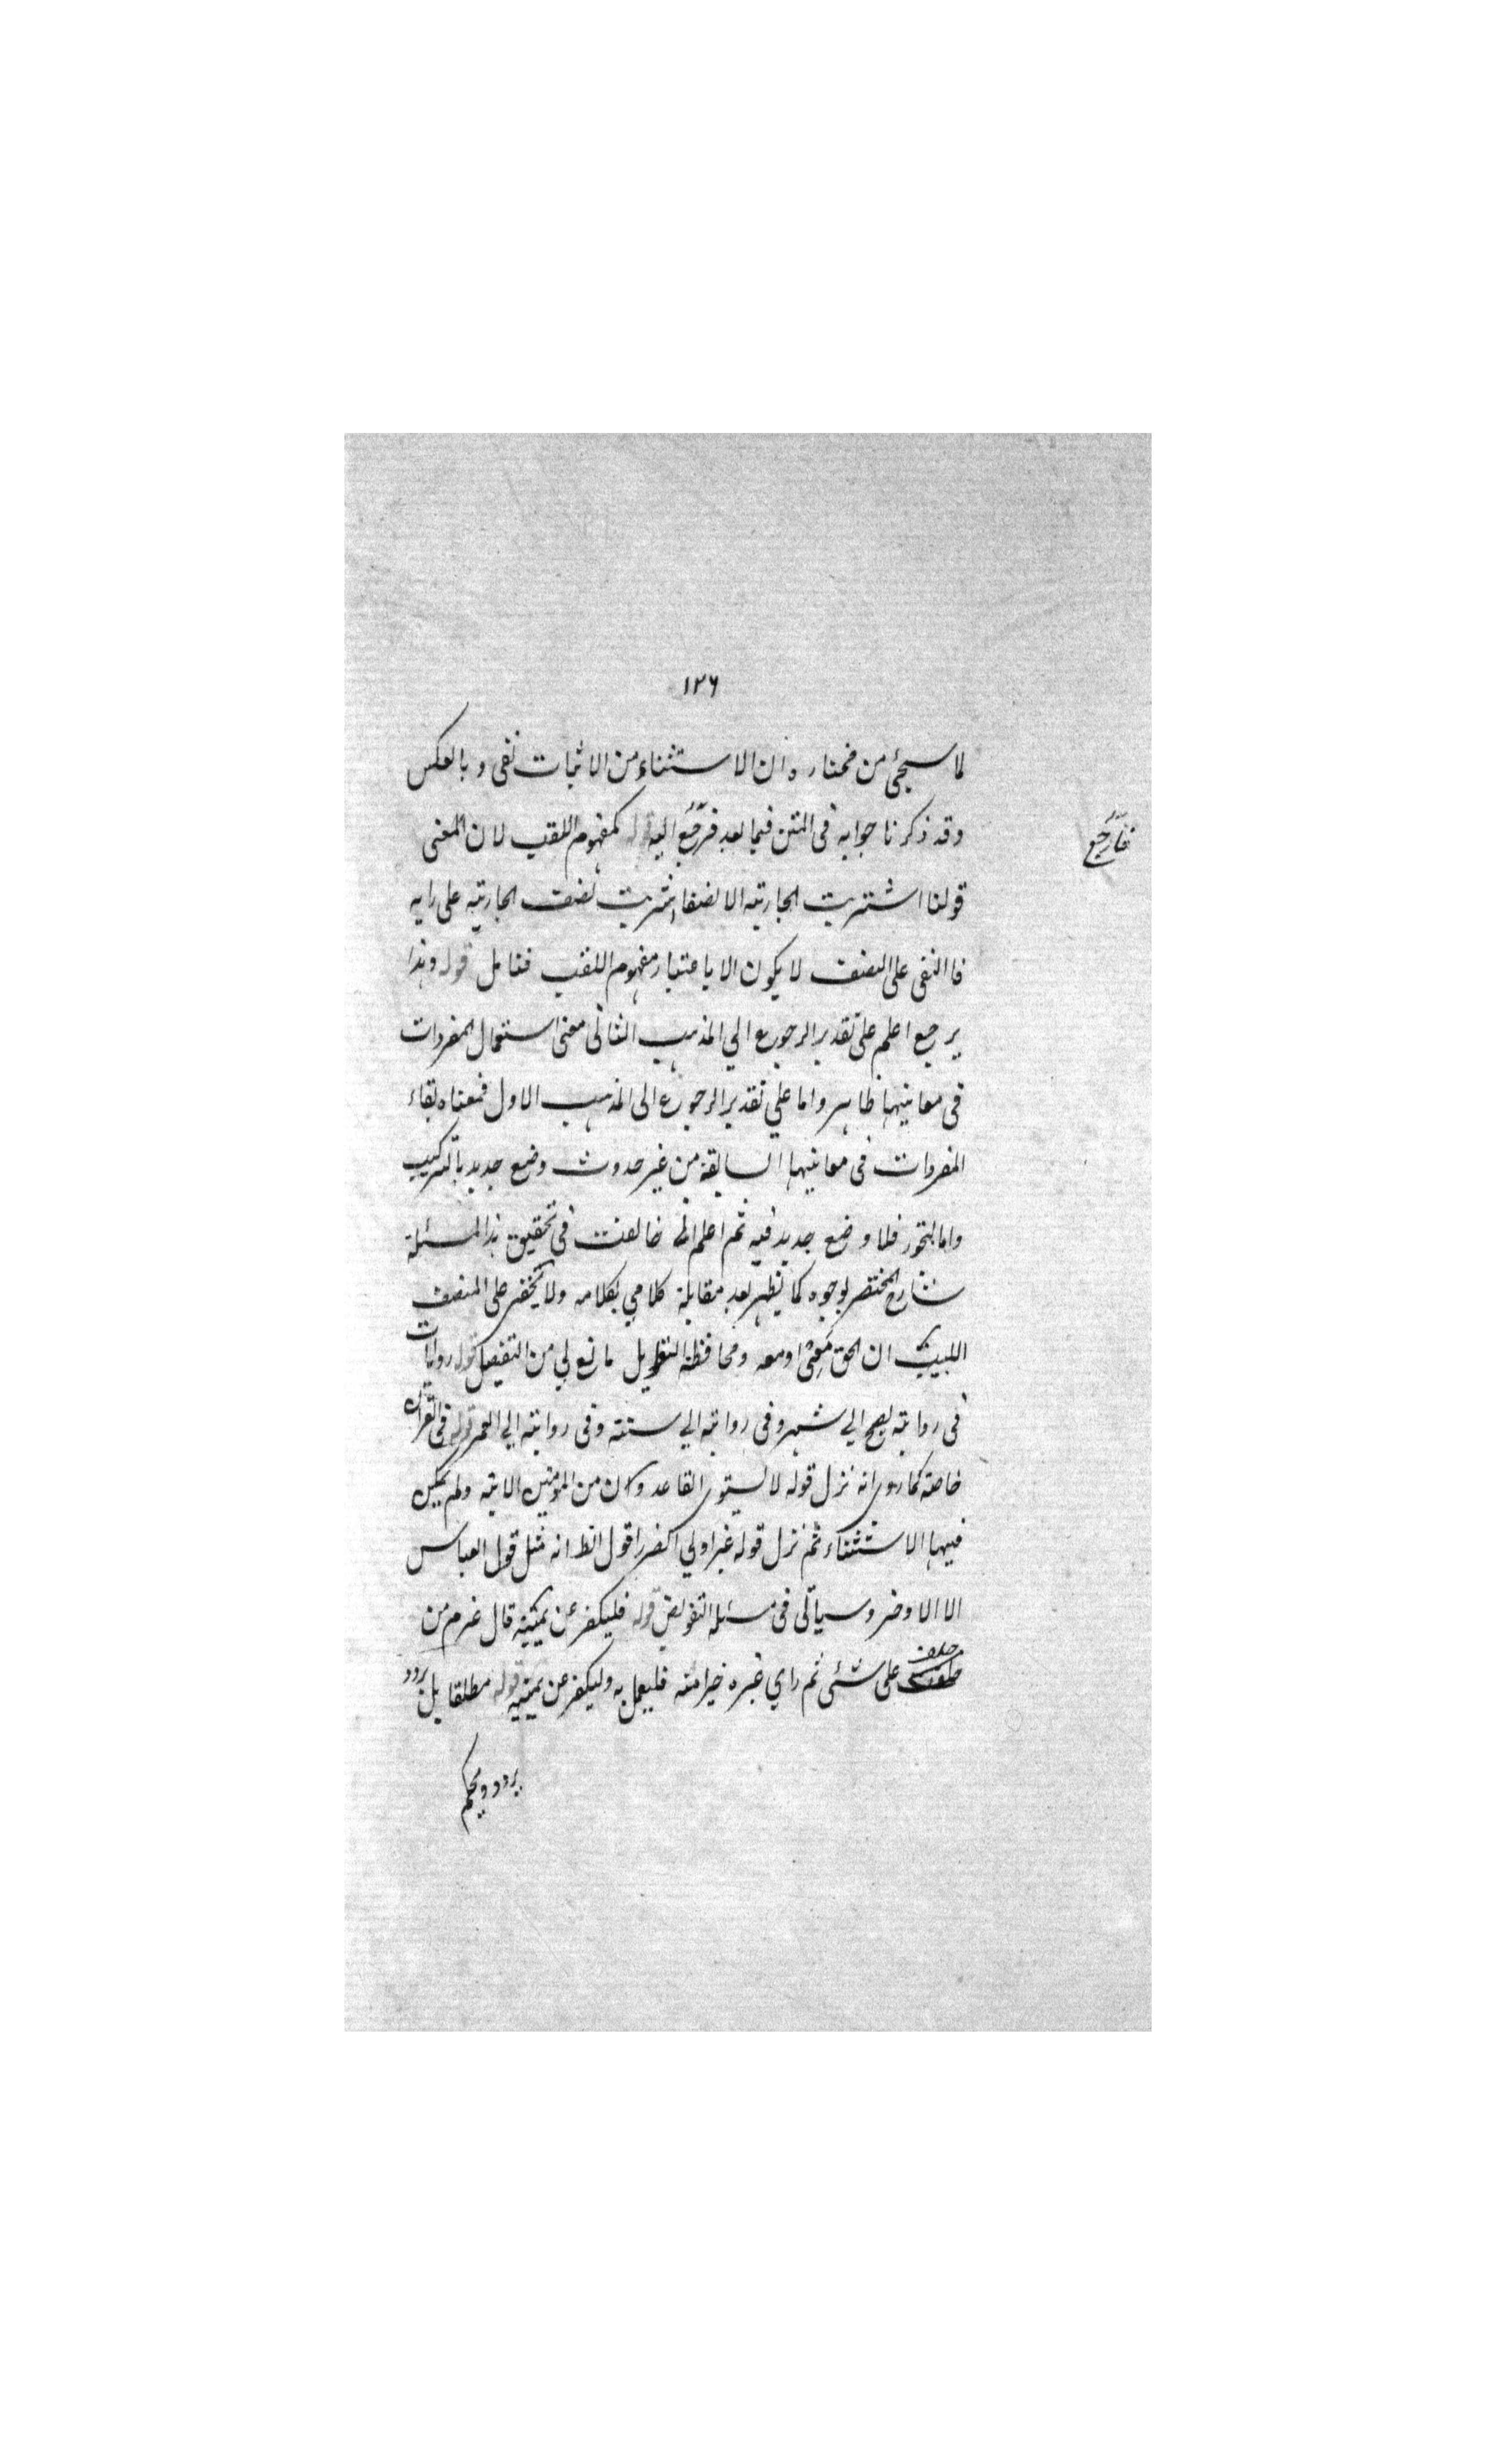 ١٣٦
لما سيجئ من مختاره ان الاستثناء من الاثبات نفى وبالعكس
وقد ذكرنا جوابه فى المتن فيما بعد فرجع اليه قوله كمفهوم اللقب لان المعنى
فارجع
قولنا اشتريت الجارية الا نصفا اشتريت نصف الجارية على رايه
فالنفى على النصف لا يكون الا باعتبار مفهوم اللقب فتامل قوله وهذا
يرجع اعلم على تقدير الرجوع الي المذهب الثانى معنى استعمال المفردات
فى معانيها ظاهر واما علي تقدير الرجوع الى المذهب الاول فمعناه بقاء
المفردات فى معانيها السابقة من غير حدوث وضع جديد بالتركيب
واما التجوز فلا وضع جديد فيه ثم اعلم انى خالفت فى تحقيق هذا المسئلة
شارح المختصر بوجوه كما يظهر بعد مقابلة كلامي بكلامه ولا يخفى على المنصف
اللبيب ان الحق معى او معه ومحافظة التطويل مانع لي من التفصيل قوله روايات
فى رواية يصح الي شهر وفى رواية الي سنة وفى رواية الي العمر قوله فى القران
خاصة كما روى انه نزل قوله لا يستوى القاعدون من المؤمنين الاية ولم يكن
فيها الاستثناء ثم نزل قوله غير اولي الضرر اقول الظ انه مثل قول العباس
الا الاذخر وسياتى فى مسئلة التفويض قوله فليكفر عن يمينه قال عم من
حلف على شئ ثم راي غيره خيرا منه فليعمل به وليكفر عن يمينه قوله مطلقا بل يردد
يردد ويحكم